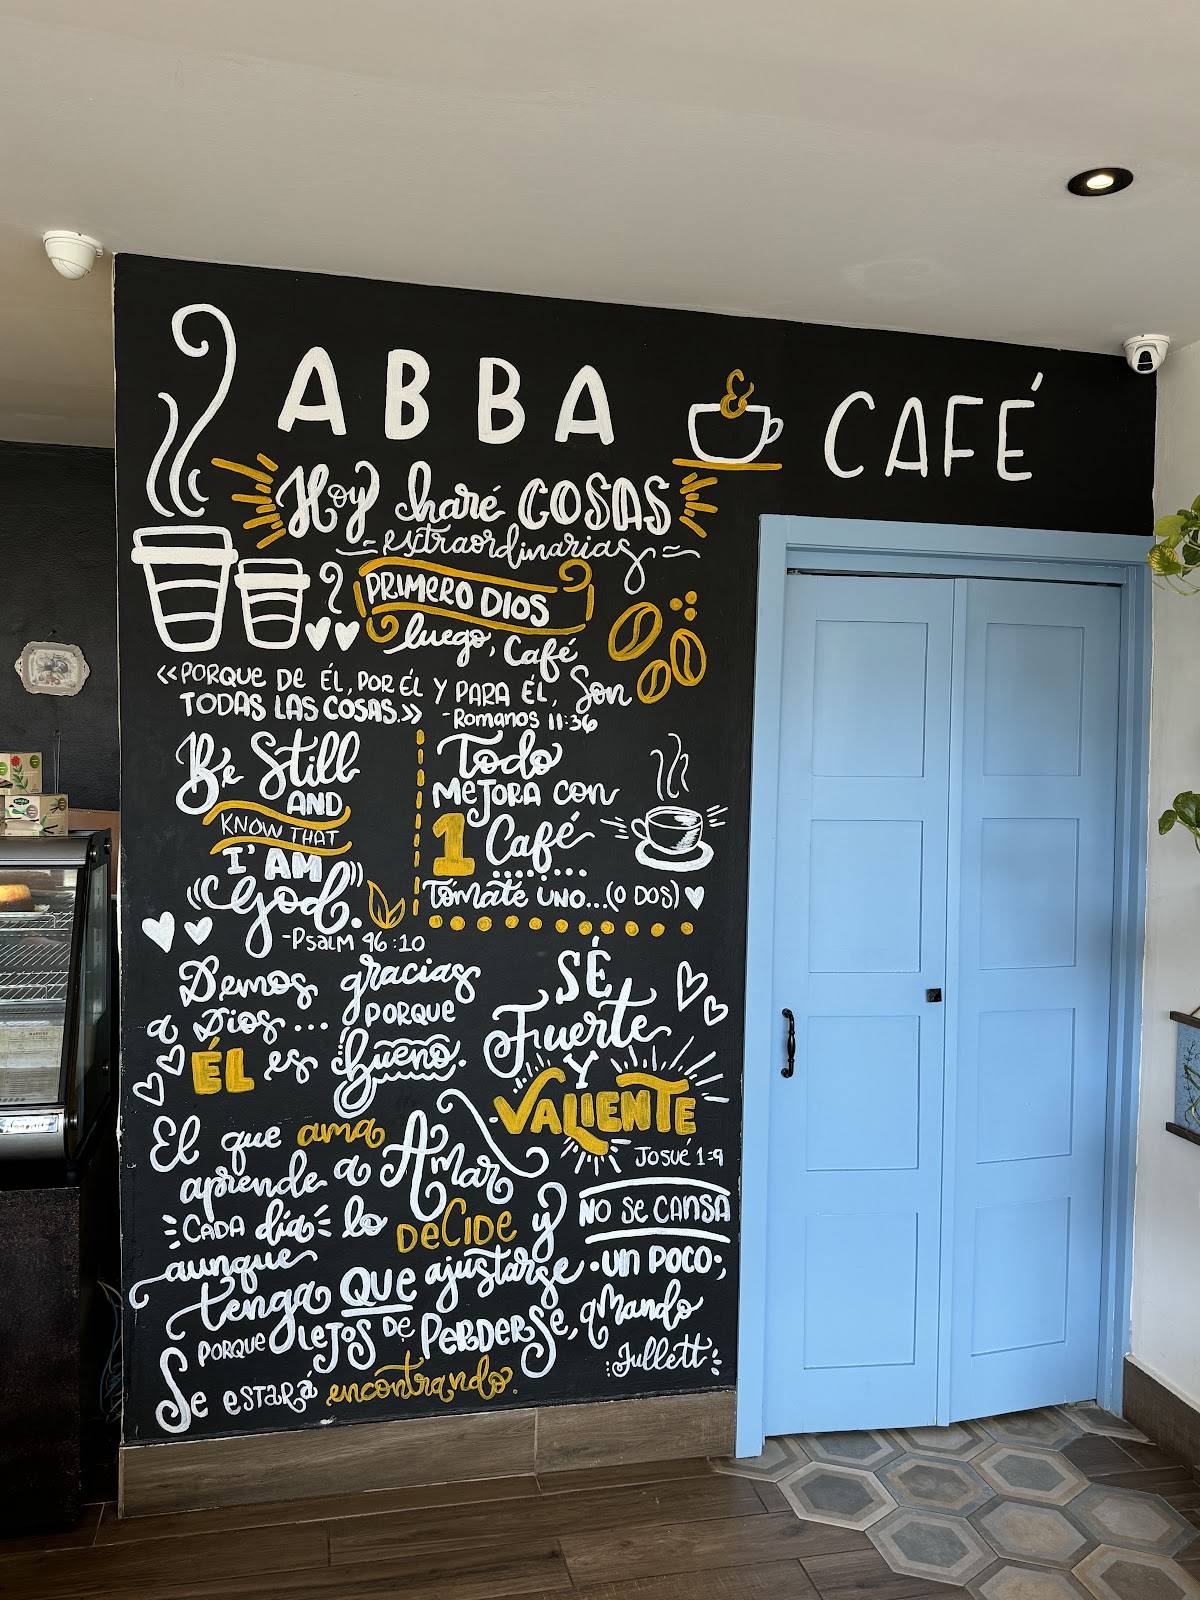 ABBA & CAFÉ
Hoy haré COSAS
extraordinarias
PRIMERO DIOS
luego, Café
«PORQUE DE ÉL, POR ÉL Y PARA ÉL, Son
TODAS LAS COSAS.»
-Romanos 11:36
Be Still
AND
KNOW THAT
I'AM
God.
-Psalm 46:10
Todo
MEJORA con
1 Café
Tómate UNO...(O DOS)
Demos gracias
a Dios... PORQUE
ÉL es bueno.
SÉ
Fuerte
Y
VALIENTE
JOSUÉ 1:9
El que ama
aprende a Amar
CADA día lo DECIDE y NO SE CANSA
aunque
tenga QUE ajustarse UN POCO;
PORQUE LEJOS DE PERDERSE, amando
Se ESTARÁ encontrando.
Jullett